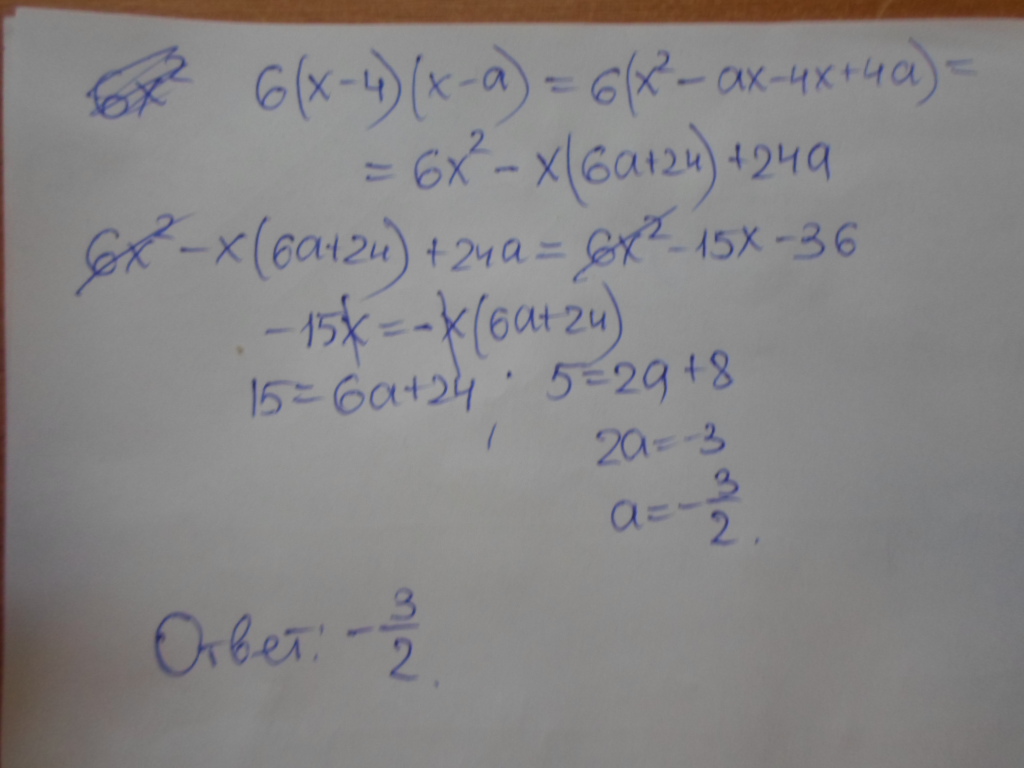 6x² 6(x-4)(x-a) = 6(x² - ax - 4x + 4a) =
= 6x² - x(6a+24) + 24a
6x² - x(6a+24) + 24a = 6x² - 15x - 36
-15x = -x(6a+24)
15 = 6a+24, 5 = 2a+8
2a = -3
a = -3/2.
Ответ: -3/2.